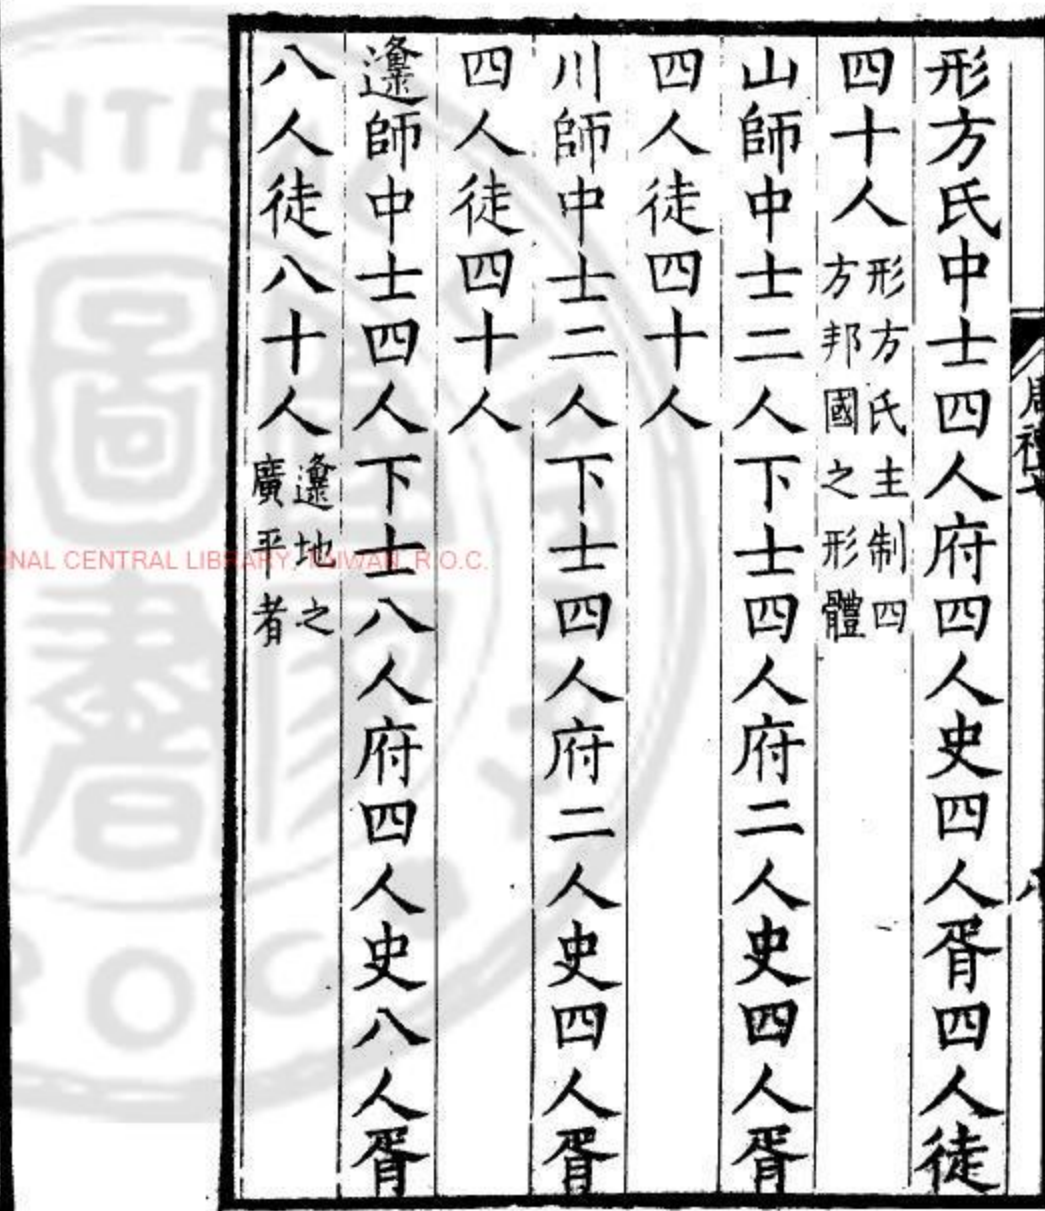 形方氏中士四人府四人史四人胥四人徒
四十人形方氏主制四方邦國之形體
山師中士二人下士四人府二人史四人胥
四人徒四十人
川師中士二人下士四人府二人史四人胥
四人徒四十人
邍師中士四人下士八人府四人史八人胥
八人徒八十人邍地之廣平者
NAL CENTRAL LIBRARY, TAIWAN, R.O.C.